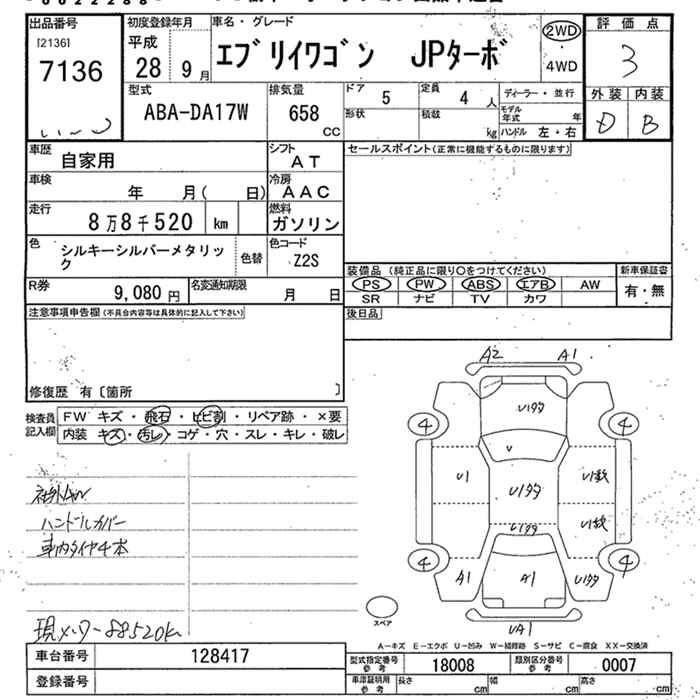 出品番号 初度登録年月 車名・グレード 評価点
[2136]
7136 平成 28 9月 エブリイワゴン JPターボ 2WD・4WD 3
型式 ABA-DA17W 排気量 658 CC ドア 5 定員 4人 ディーラー・並行 外装 内装
形状 積載 kg モデル年式 年 D B
ハンドル 左・右
車歴 自家用 シフト AT セールスポイント(正常に機能するものに限ります)
車検 年 月( 日) 冷房 AAC
走行 8万8千520 km 燃料 ガソリン
色 シルキーシルバーメタリック 色替 色コード Z2S
装備品 (純正品に限り○をつけてください) 新車保証書
R券 9,080円 名変通知期限 月 日 PS PW ABS エアB AW 有・無
SR ナビ TV カワ
注意事項申告欄(不具合内容等は具体的に記入して下さい) 後日品
修復歴 有〔箇所 〕
A2 A1
検査員記入欄 FW キズ・飛石・ヒビ割・リペア跡・×要
内装 キズ・汚レ・コゲ・穴・スレ・キレ・破レ
4 U1タタ 4
U
U1 U1タタ U1数
社外AW
ハンドルカバー U1タタ U1数
車内タイヤ4本
4 4
A1 A1 U1タタ
スペア
UA1
現メーター88520km
A-キズ E-エクボ U-凹み W-補修跡 S-サビ C-腐食 XX-交換済
車台番号 128417 型式指定番号 参考 18008 類別区分番号 参考 0007
登録番号 車庫証明用 参考 長さ cm 幅 cm 高さ cm